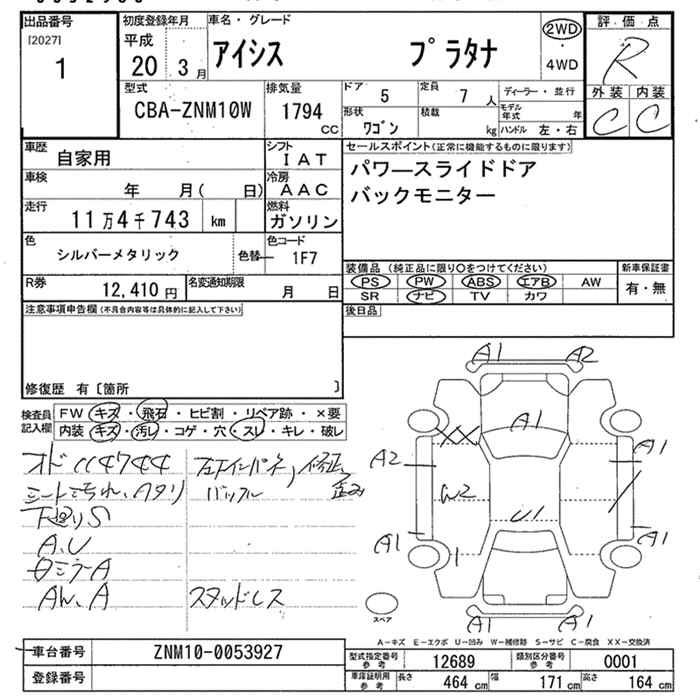 出品番号
[2027]
1
初度登録年月
平成
20 3月
車名・グレード
アイシス プラタナ
2WD
・
4WD
評価点
R
外装 内装
C C
型式
CBA-ZNM10W
排気量
1794
CC
ドア 5
定員 7人
ディーラー・並行
形状 ワゴン
積載 kg
モデル年式 年
ハンドル 左・右
車歴
自家用
シフト
IAT
車検
年 月( 日)
冷房
AAC
走行
11万4千743 km
燃料
ガソリン
色
シルバーメタリック
色替
色コード
1F7
R券
12,410円
名変通知期限
月 日
セールスポイント(正常に機能するものに限ります)
パワースライドドア
バックモニター
装備品(純正品に限り○をつけてください)
新車保証書
PS PW ABS エアB AW
SR ナビ TV カワ
有・無
後日品
注意事項申告欄(不具合内容等は具体的に記入して下さい)
修復歴 有〔箇所 〕
検査員記入欄
FW キズ・飛石・ヒビ割・リペア跡・×要
内装 キズ・汚レ・コゲ・穴・スレ・キレ・破レ
オド114744
シートよごれ、Aタリ
下廻りS
A.U
ミラーA
AW.A
左Fインパネ,修正
バッフル 歪み
スタッドレス
A1 A2
A1
XX
A2 A1
W2
U1
A1 A1
A1 A1
スペア
A-キズ E-エクボ U-凹み W-補修跡 S-サビ C-腐食 XX-交換済
車台番号 ZNM10-0053927
登録番号
型式指定番号参考 12689
類別区分番号参考 0001
車庫証明用参考
長さ 464cm
幅 171cm
高さ 164cm